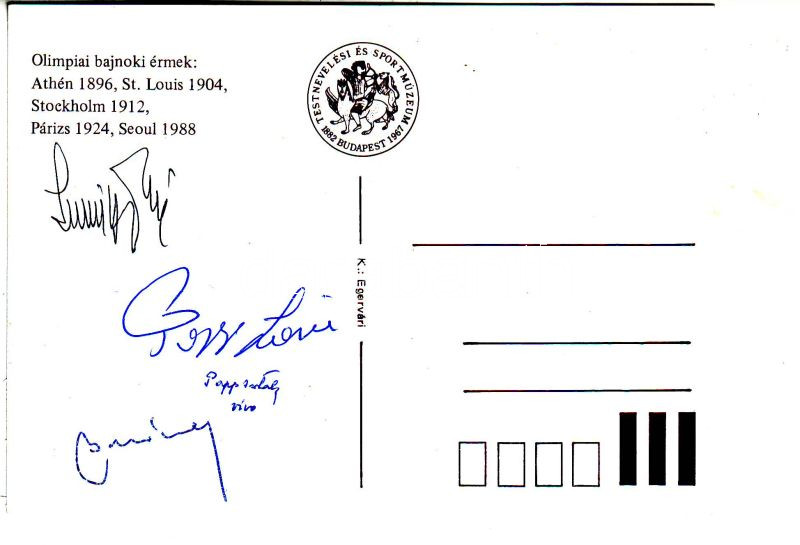 Olimpiai bajnoki érmek:
Athén 1896, St. Louis 1904,
Stockholm 1912,
Párizs 1924, Seoul 1988
TESTNEVELÉSI ÉS SPORTMÚZEUM
1882 BUDAPEST 1967
K.: Egervári
Papp
vívó